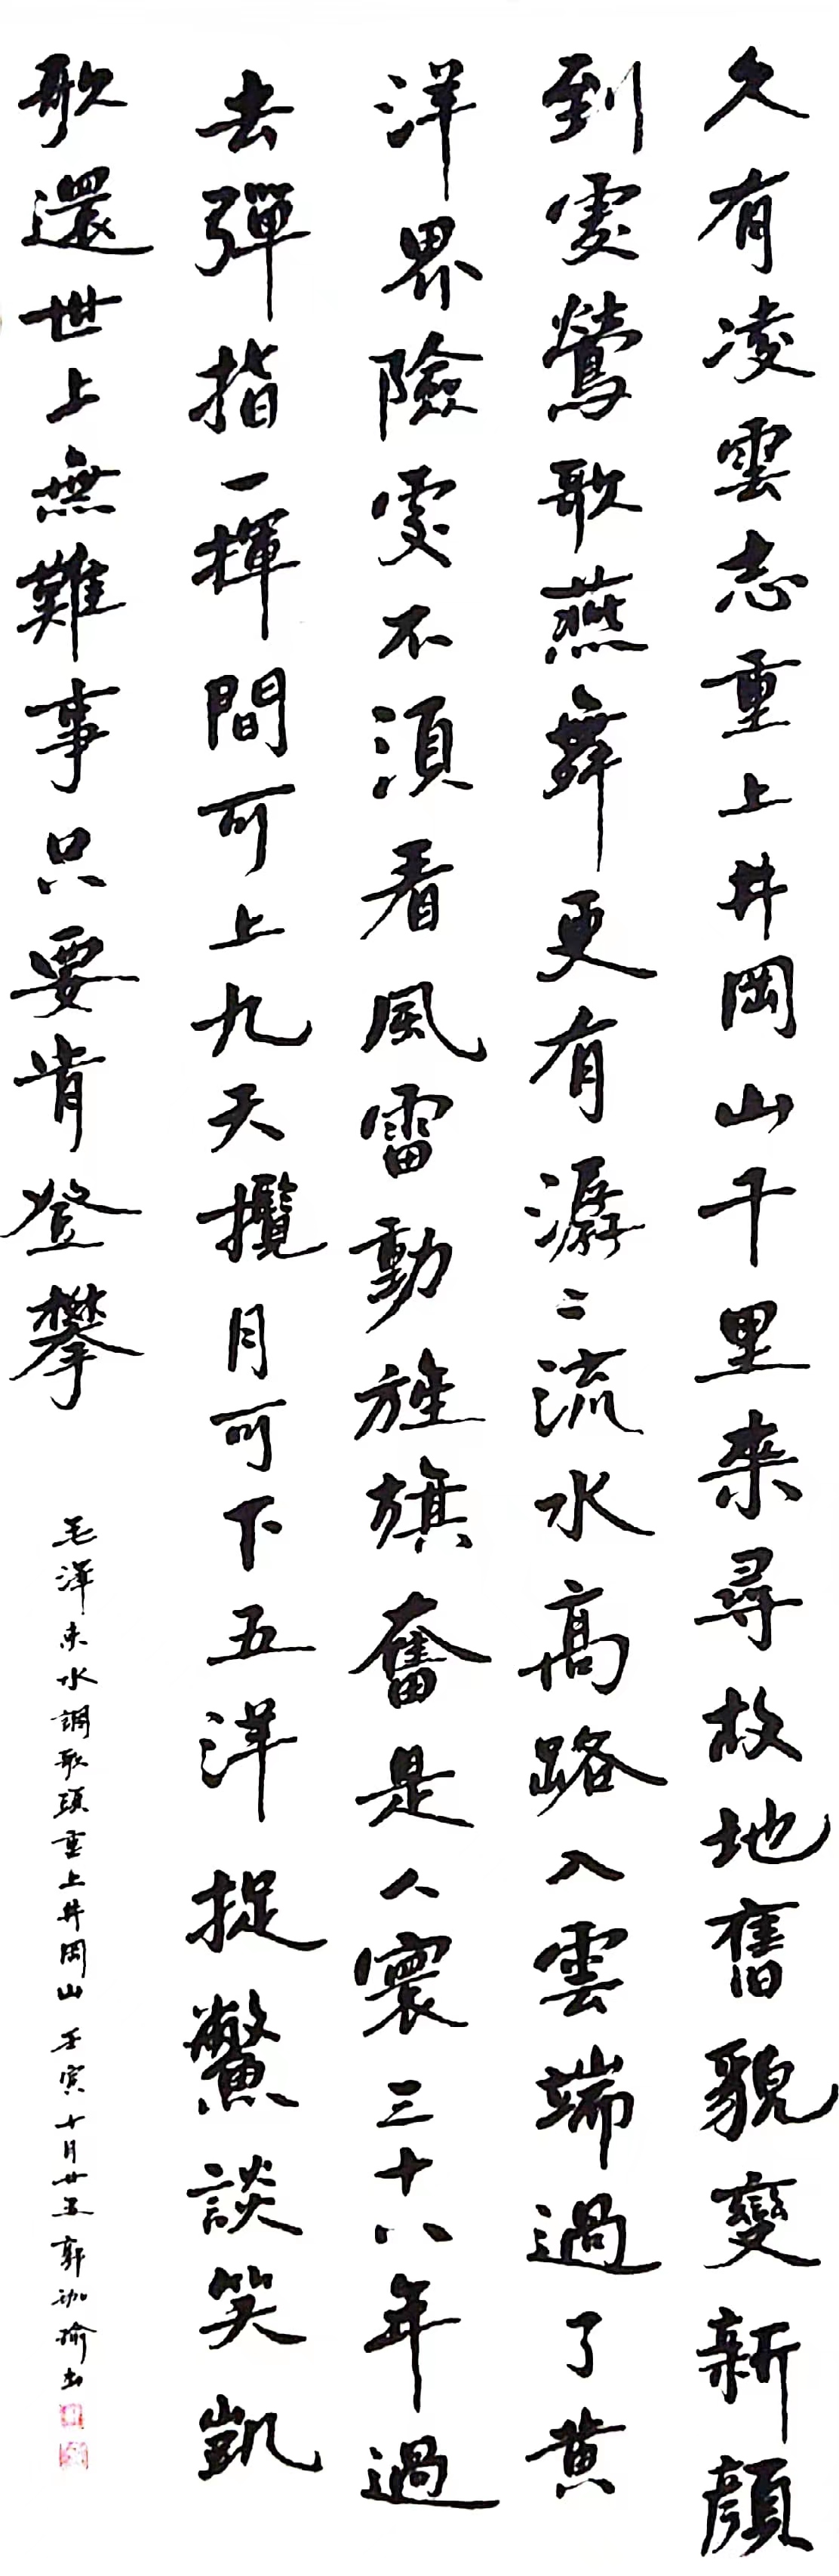 久有凌雲志重上井岡山千里来尋故地舊貌變新顏
到處鶯歌燕舞更有潺〻流水高路入雲端過了黄
洋界險處不須看風雷動旌旗奮是人寰三十八年過
去彈指一揮間可上九天攬月可下五洋捉鱉談笑凱
歌還世上無難事只要肯登攀
毛澤东水調歌頭重上井岡山 壬寅十月廿五郭沩瑜书